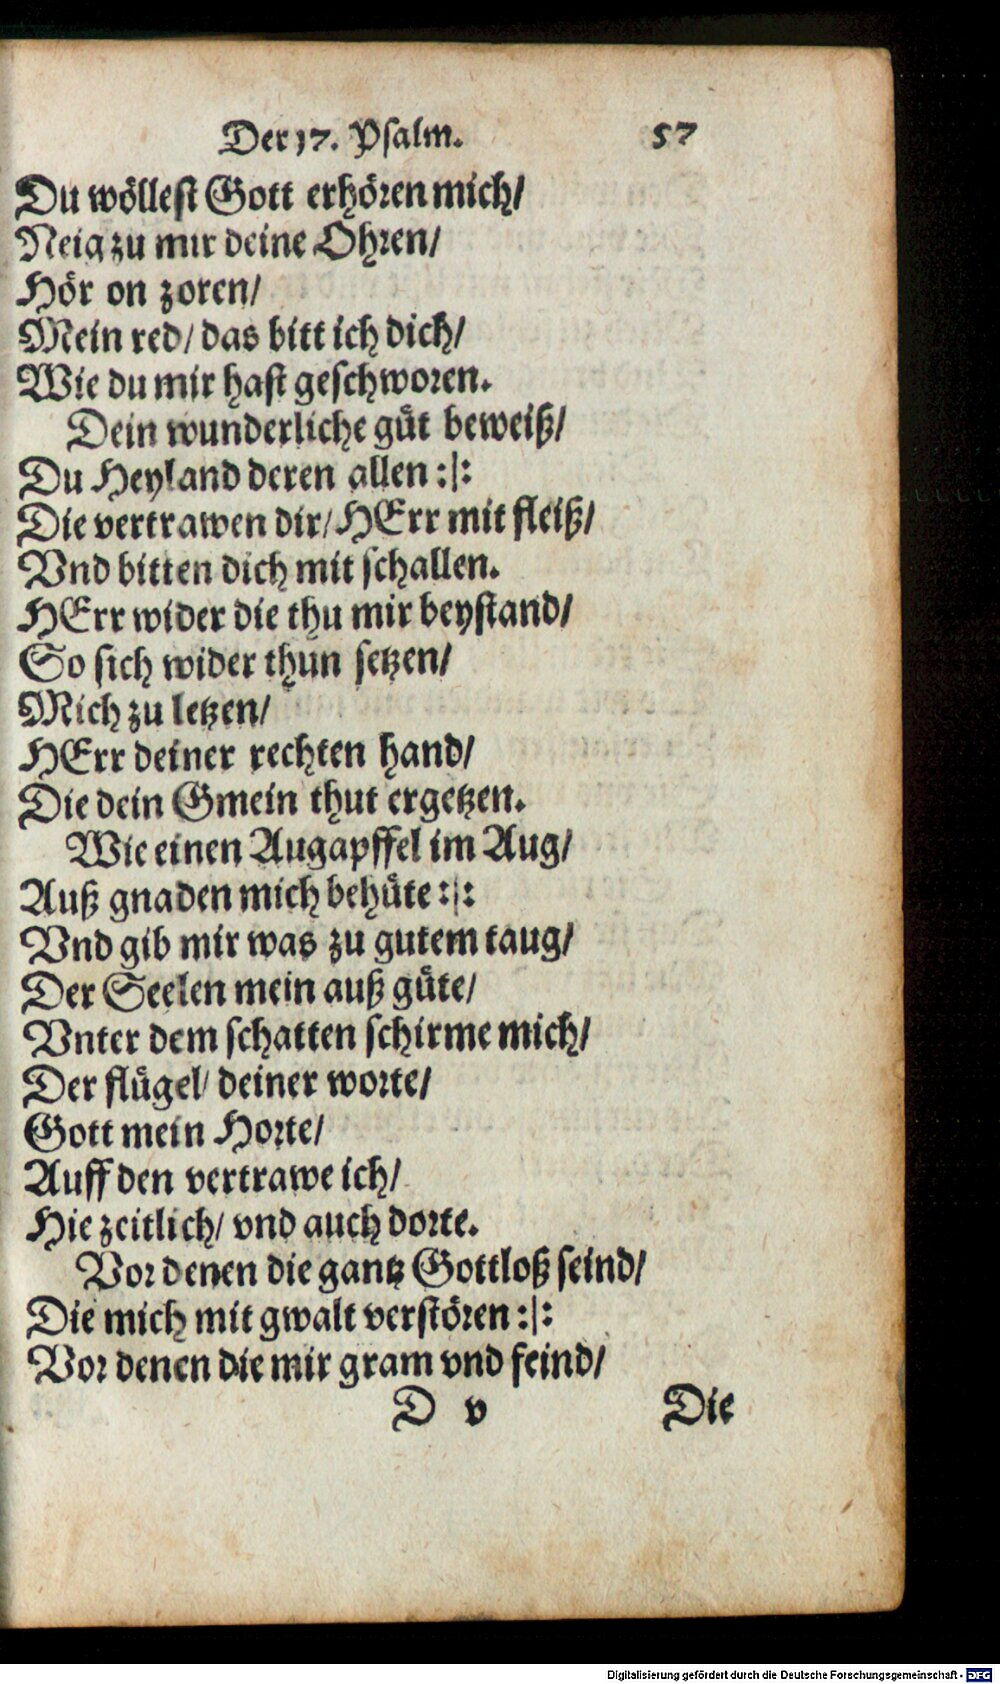 Der 17. Psalm. 57
Du wöllest Gott erhören mich/
Neig zu mir deine Ohren/
Hör on zoren/
Mein red/ das bitt ich dich/
Wie du mir hast geschworen.
Dein wunderliche güt beweiß/
Du Heyland deren allen :|:
Die vertrawen dir/ HErr mit fleiß/
Vnd bitten dich mit schallen.
HErr wider die thu mir beystand/
So sich wider thun setzen/
Mich zu letzen/
HErr deiner rechten hand/
Die dein Gmein thut ergetzen.
Wie einen Augapffel im Aug/
Auß gnaden mich behüte :|:
Vnd gib mir was zu gutem taug/
Der Seelen mein auß güte/
Vnter dem schatten schirme mich/
Der flügel/ deiner worte/
Gott mein Horte/
Auff den vertrawe ich/
Hie zeitlich/ vnd auch dorte.
Vor denen die gantz Gottloß seind/
Die mich mit gwalt verstören :|:
Vor denen die mir gram vnd feind/
D v Die
Digitalisierung gefördert durch die Deutsche Forschungsgemeinschaft - DFG